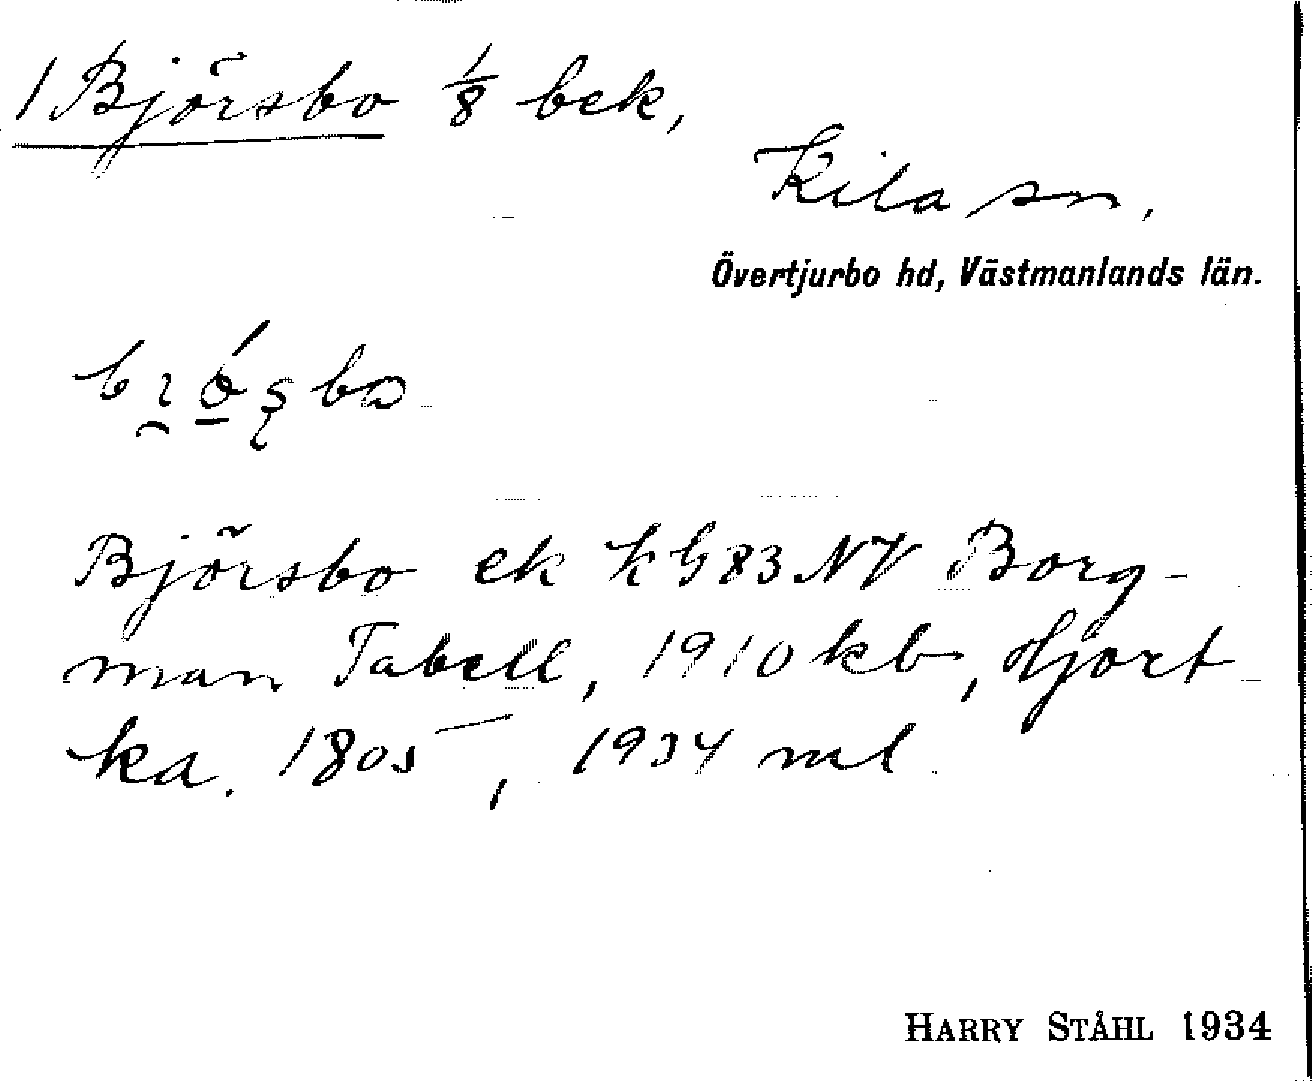 1 Björsbo 1/8 bek,
Kila sn.
Övertjurbo hd, Västmanlands län.
Björsbo ek k G83 NV Borg-
man Tabell, 1910 kb, Hjort
ka. 1805, 1934 ml
HARRY STÅHL 1934